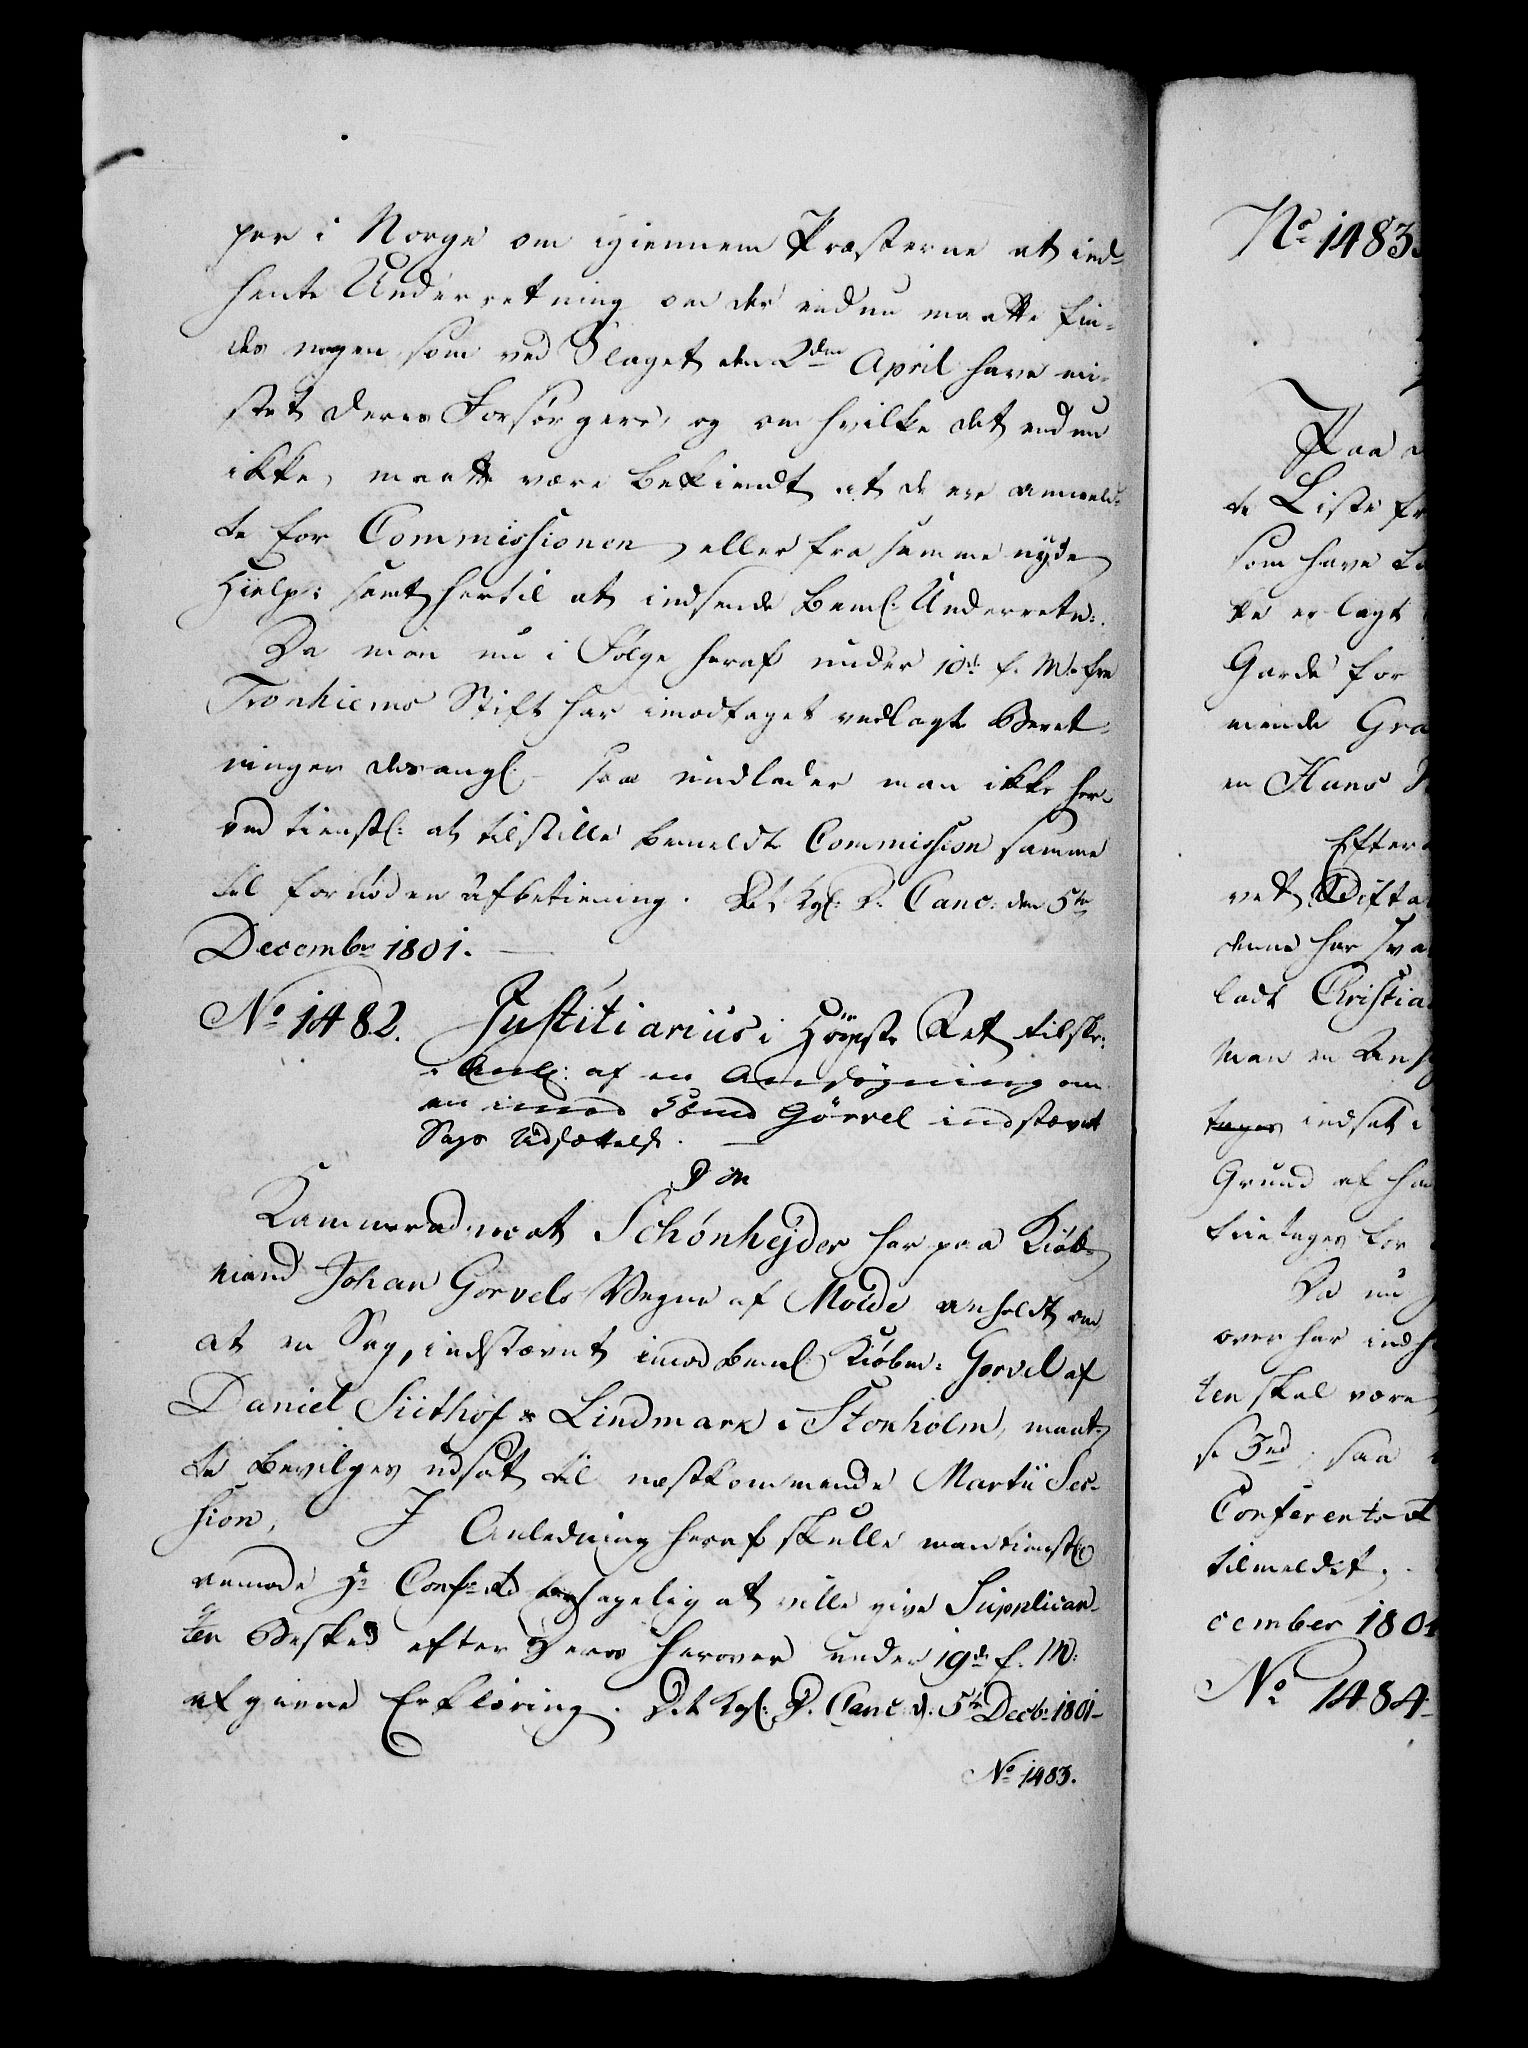 per i Norge om igiennem Præsterne at ind-
hente Underretning om der endnu maatte fin-
des nogen som ved Slaget den 2den April have mi-
stet deres Forsørgere, og om hvilke det endnu
ikke maatte være bekiendt at de ere anmeld-
te for Commissionen, eller fra samme nyde
Hielp: samt hertil at indsende beml: Underretn:.
Da man nu i Følge heraf under 10de f. M. fra
Tronhiems Stift har imodtaget vedlagte Beret-
ninger desangl: - saa undlader man ikke her-
ved tienstl: at tilstille bemeldte Commission samme
til fornøden Afbetiening. Det Kgl: D. Canc: den 5te
Decembr 1801.
No 1482. Justitiarius i Høyeste Ret tilskr:
i Anl: af en Ansøgning om
en imod Görvel indstævnt
Sags Udsættelse.
P M
Kammeradvocat Schønhejder har paa Kiøb-
mand Johan Gorvels Vegne af Molde anholdt om
at en Sag, indstævnt imod beml: Kiøbm: Gorvel af
Daniel Siithof & Lindmark i Stokholm, maat-
te bevilges udsat til næstkommende Martii Ses-
sion, I Anledning heraf skulle man tienstl:
anmode Hr Confrd behagelig at ville give Supplican-
ten Besked efter Deres herover under 19de f. M.
afgivne Erklæring. Det Kgl: D. Canc: d. 5te Decbr 1801
No 1483.
No 1483.
Paa
te Liste fr
som have
ke er lagt
Garde for
mende Gra
en Hans
Efter
ved Stifta
denne har sva
ladt Christia
man en Ans
tages indsat i
Grund af ha
fritages for
Da nu
over har indh
ten skal være
saa
Conferentsr
tilmeldet.
cember 1801
No 1484